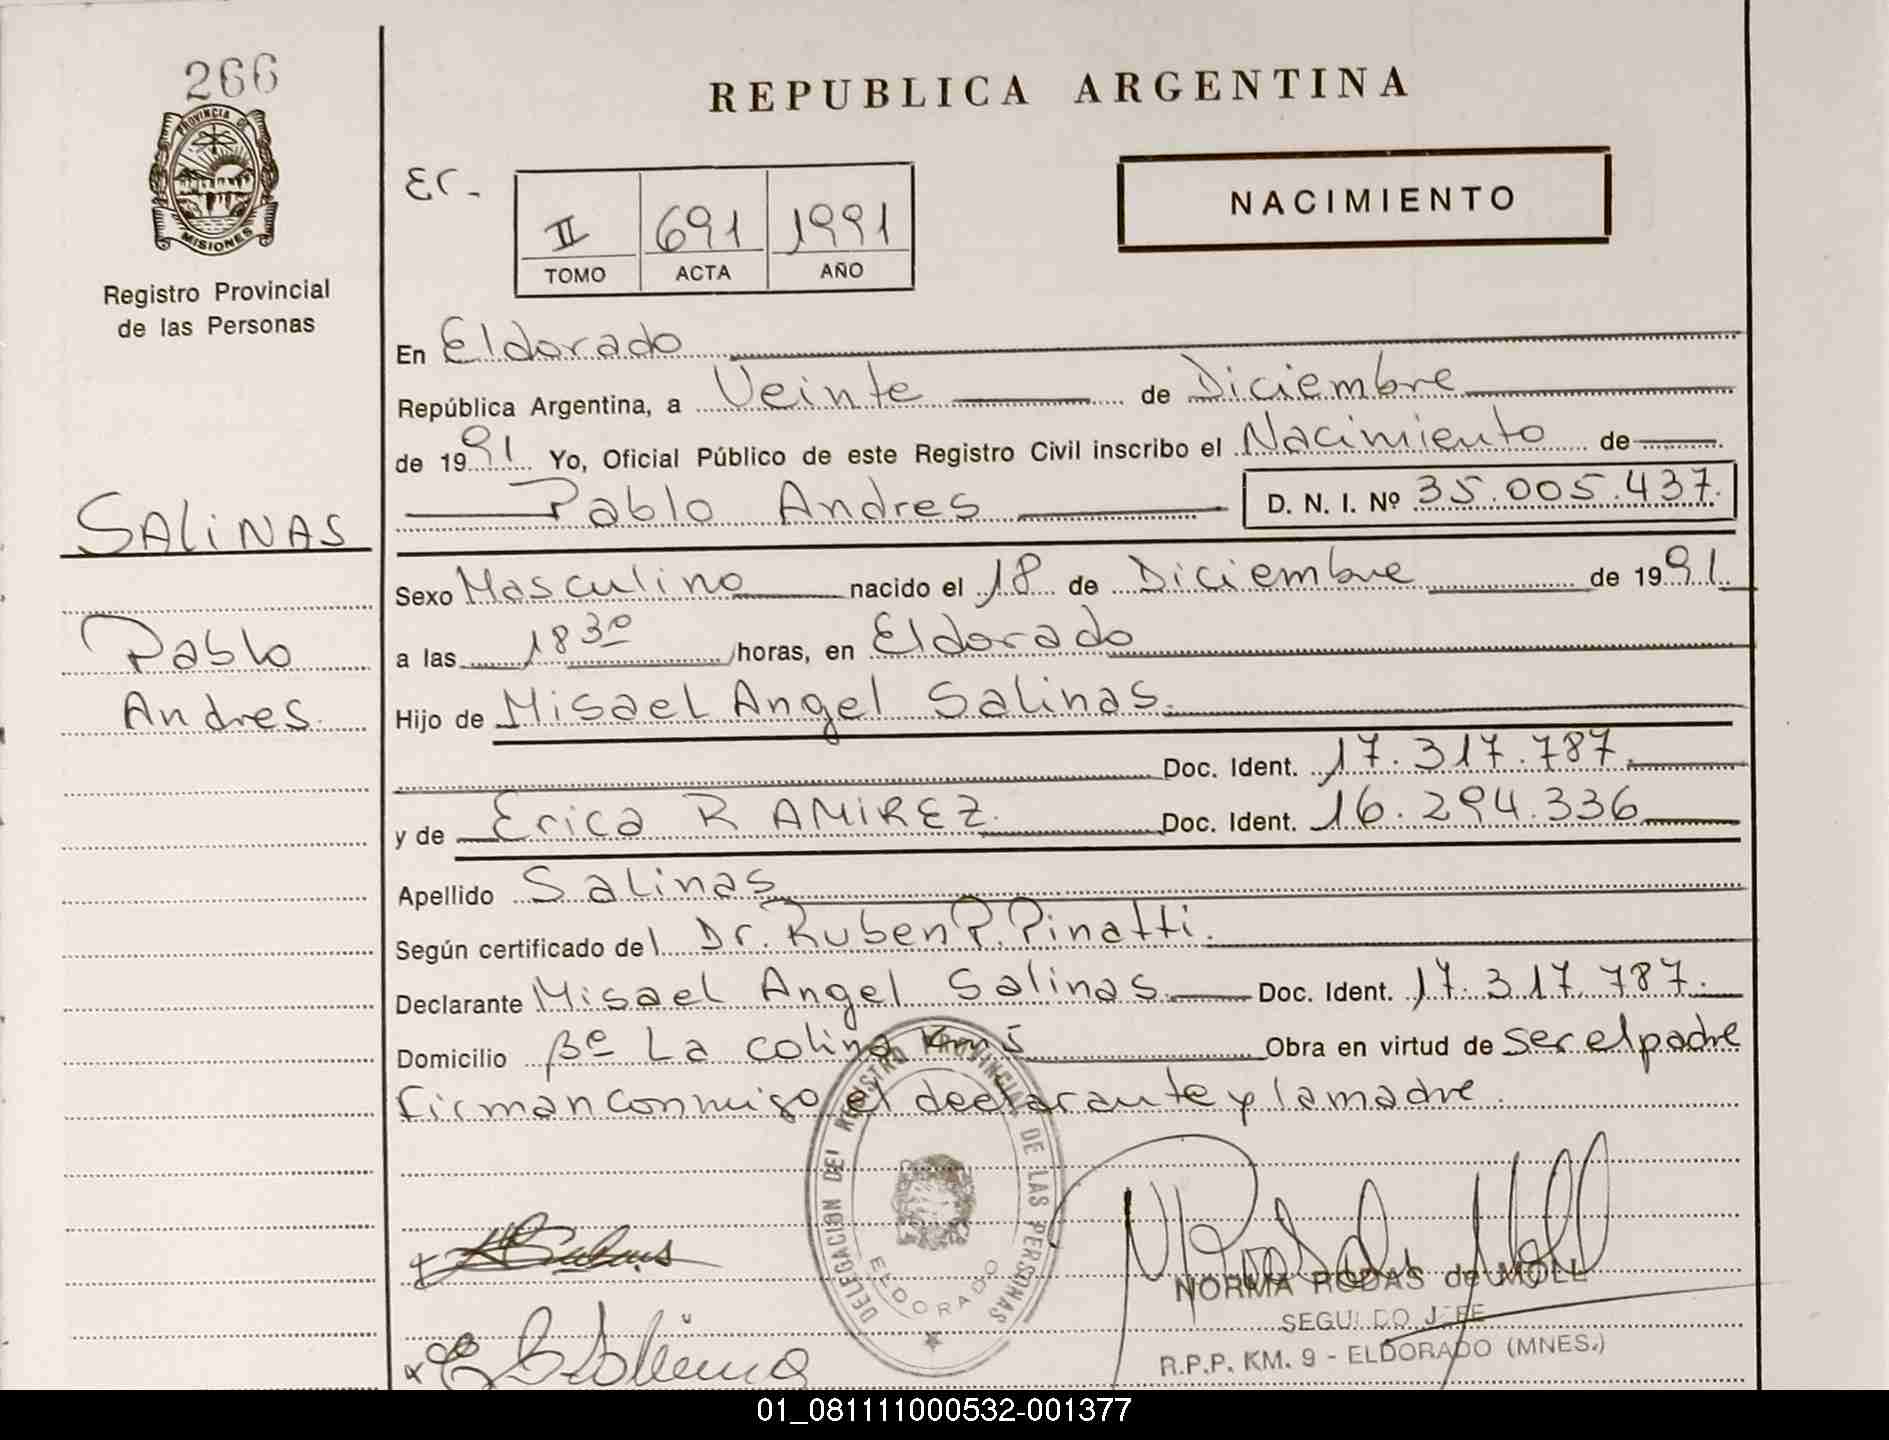 266
PROVINCIA DE
MISIONES
Registro Provincial
de las Personas
SALINAS
Pablo
Andres.
REPUBLICA ARGENTINA
Er.-
II 691 1991
TOMO ACTA AÑO
NACIMIENTO
En Eldorado
República Argentina, a Veinte de Diciembre
de 1991 Yo, Oficial Público de este Registro Civil inscribo el Nacimiento de
Pablo Andres D. N. I. Nº 35.005.437.
Sexo Masculino nacido el 18 de Diciembre de 1991
a las 18 30 horas, en Eldorado
Hijo de Misael Angel Salinas.
Doc. Ident. 17.317.787.
y de Erica RAMIREZ. Doc. Ident. 16.294.336
Apellido Salinas
Según certificado del Dr. Ruben P. Pinatti.
Declarante Misael Angel Salinas Doc. Ident. 17.317.787.
Domicilio Bº La colina Km 5 Obra en virtud de ser el padre
firman conmigo el declarante y la madre.
DELEGACION DEL REGISTRO PROVINCIAL DE LAS PERSONAS
ELDORADO
NORMA RODAS de MOLL
SEGUNDO JEFE
R.P.P. KM. 9 - ELDORADO (MNES.)
01_081111000532-001377